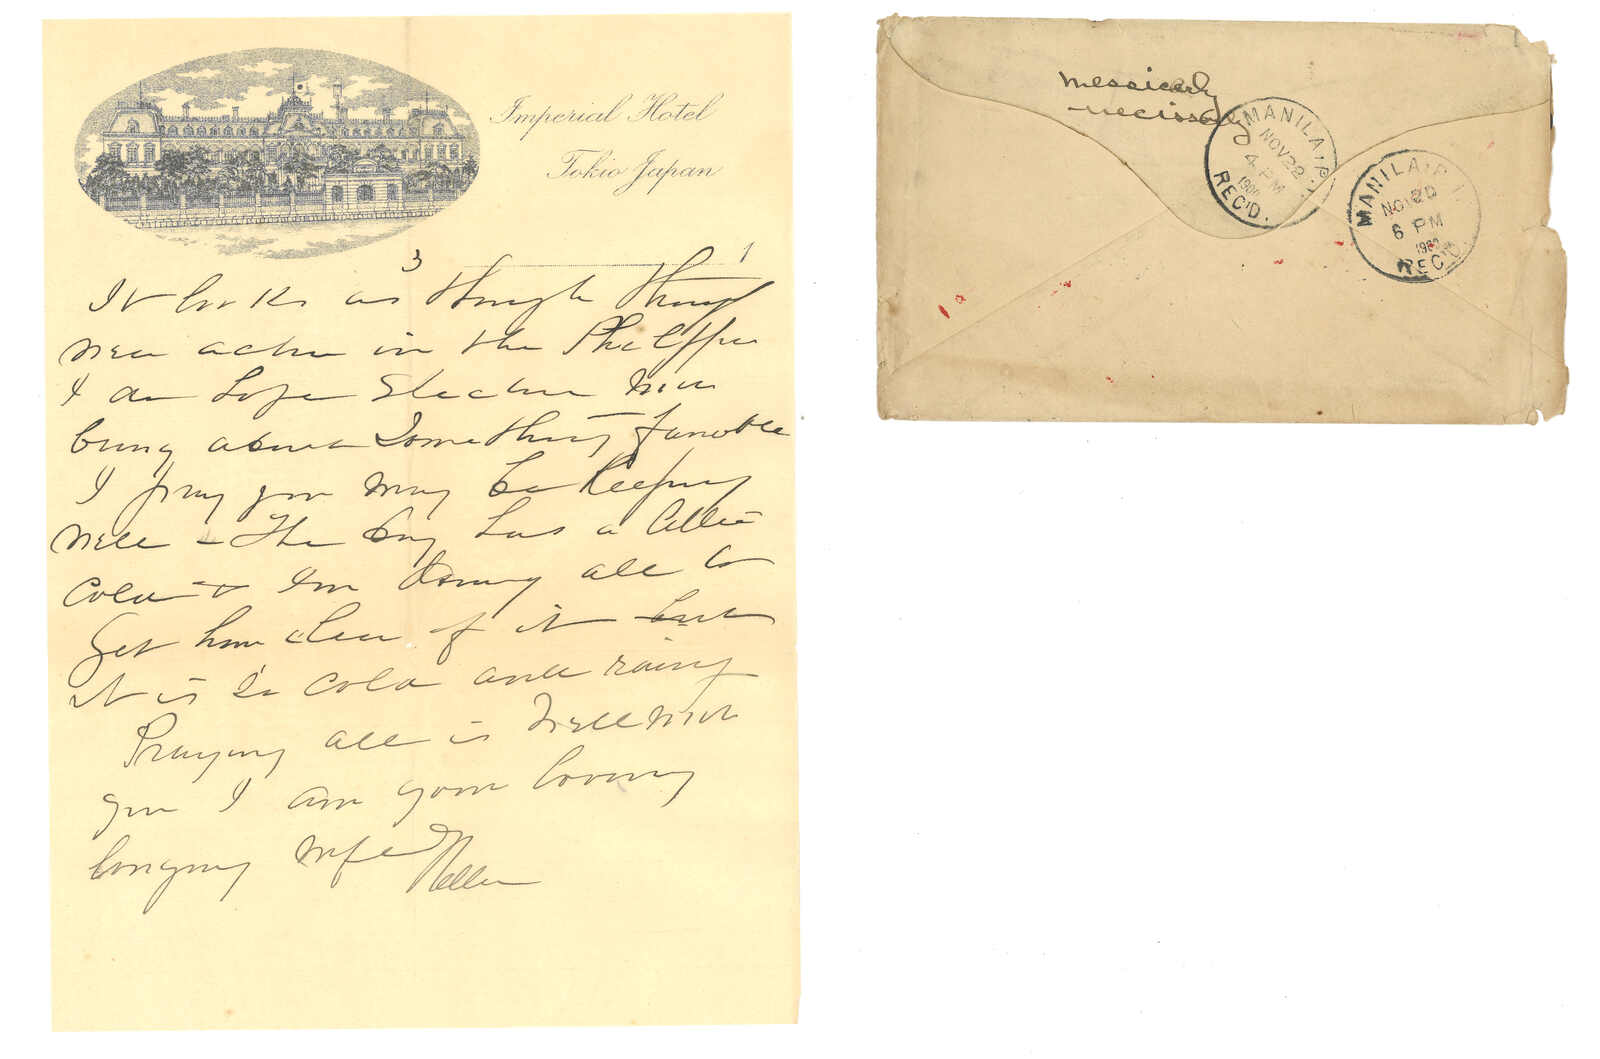 Imperial Hotel
Tokio Japan
3
1
It looks as though things
were active in the
I do hope Election will
bring about something favorable
I pray you may be keeping
well - The boy has a little
cold + I'm doing all to
get him clear of it but
it is so cold and rainy
Praying all is well with
you I am your loving
longing wife Nellie
messicerly
necissary
MANILA, P.I.
NOV 22
4 PM
1900
REC'D.
MANILA, P.I.
NOV 20
6 PM
1900
REC'D.